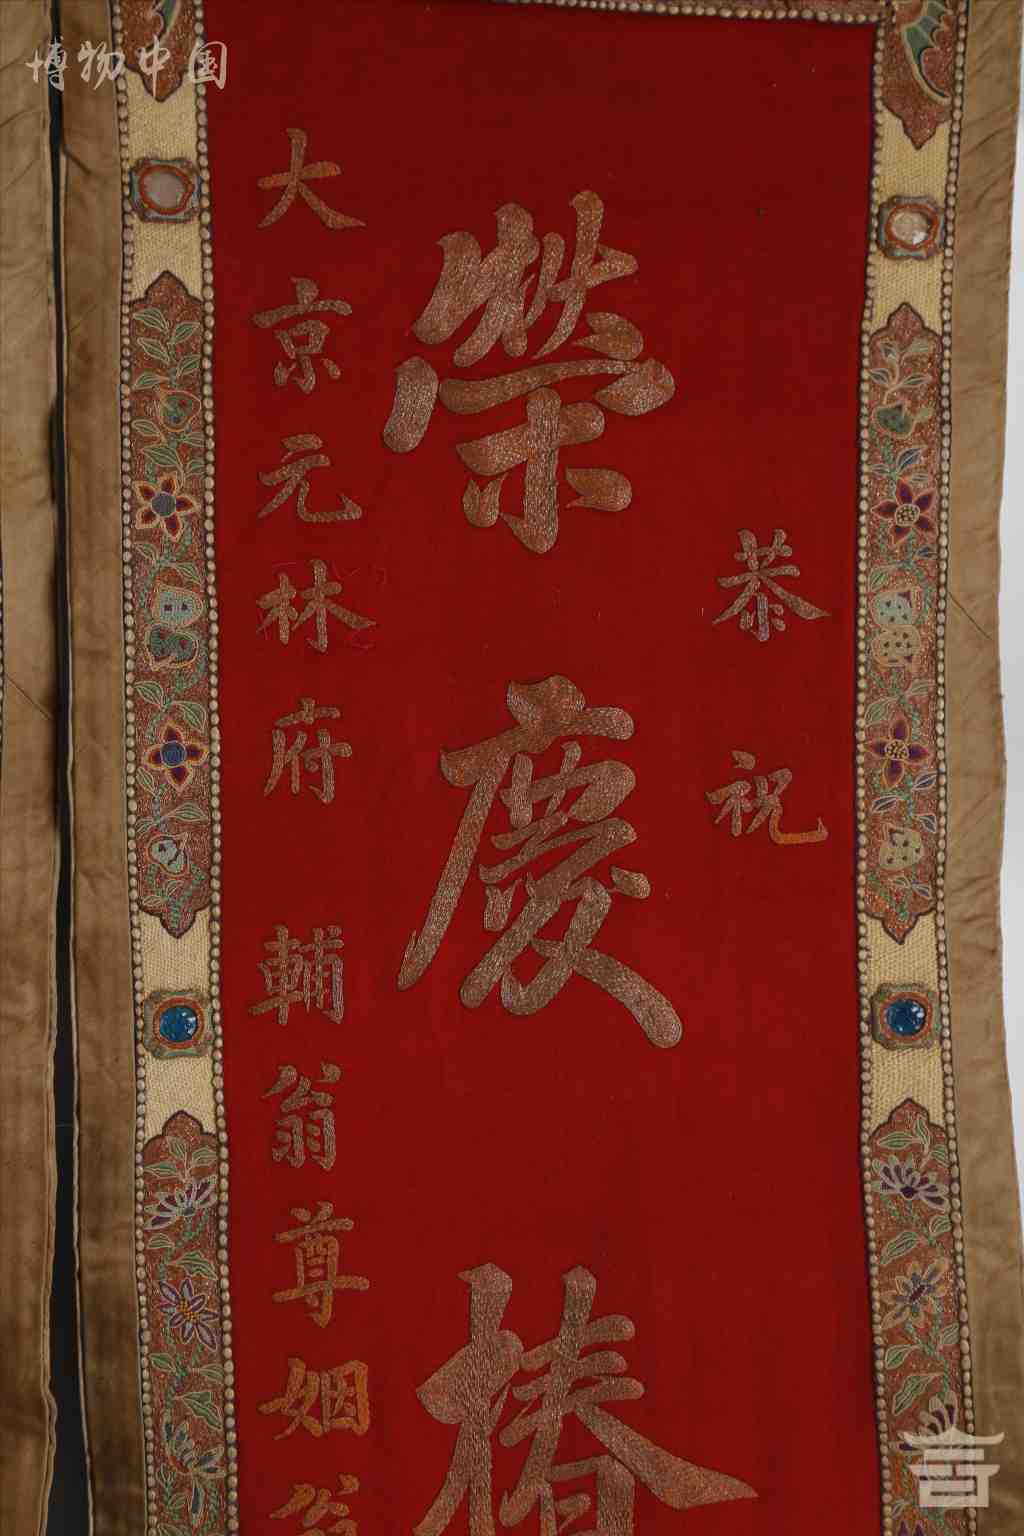 博物中国
恭祝
榮慶椿
大京元林府輔翁尊姻翁